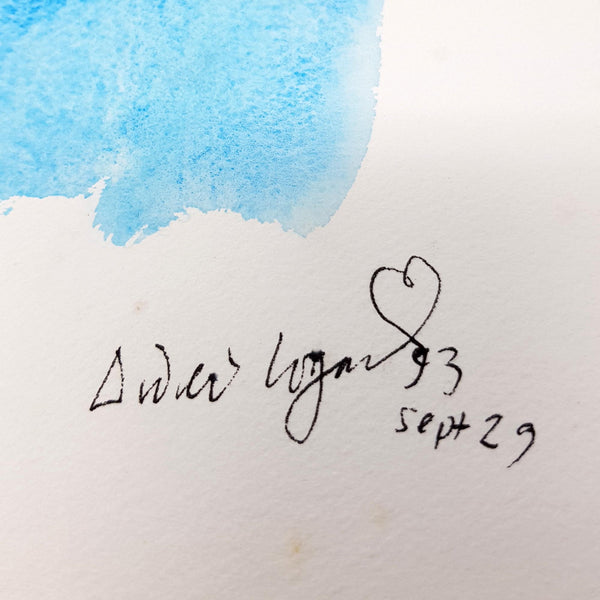 Logan 93
sept 29